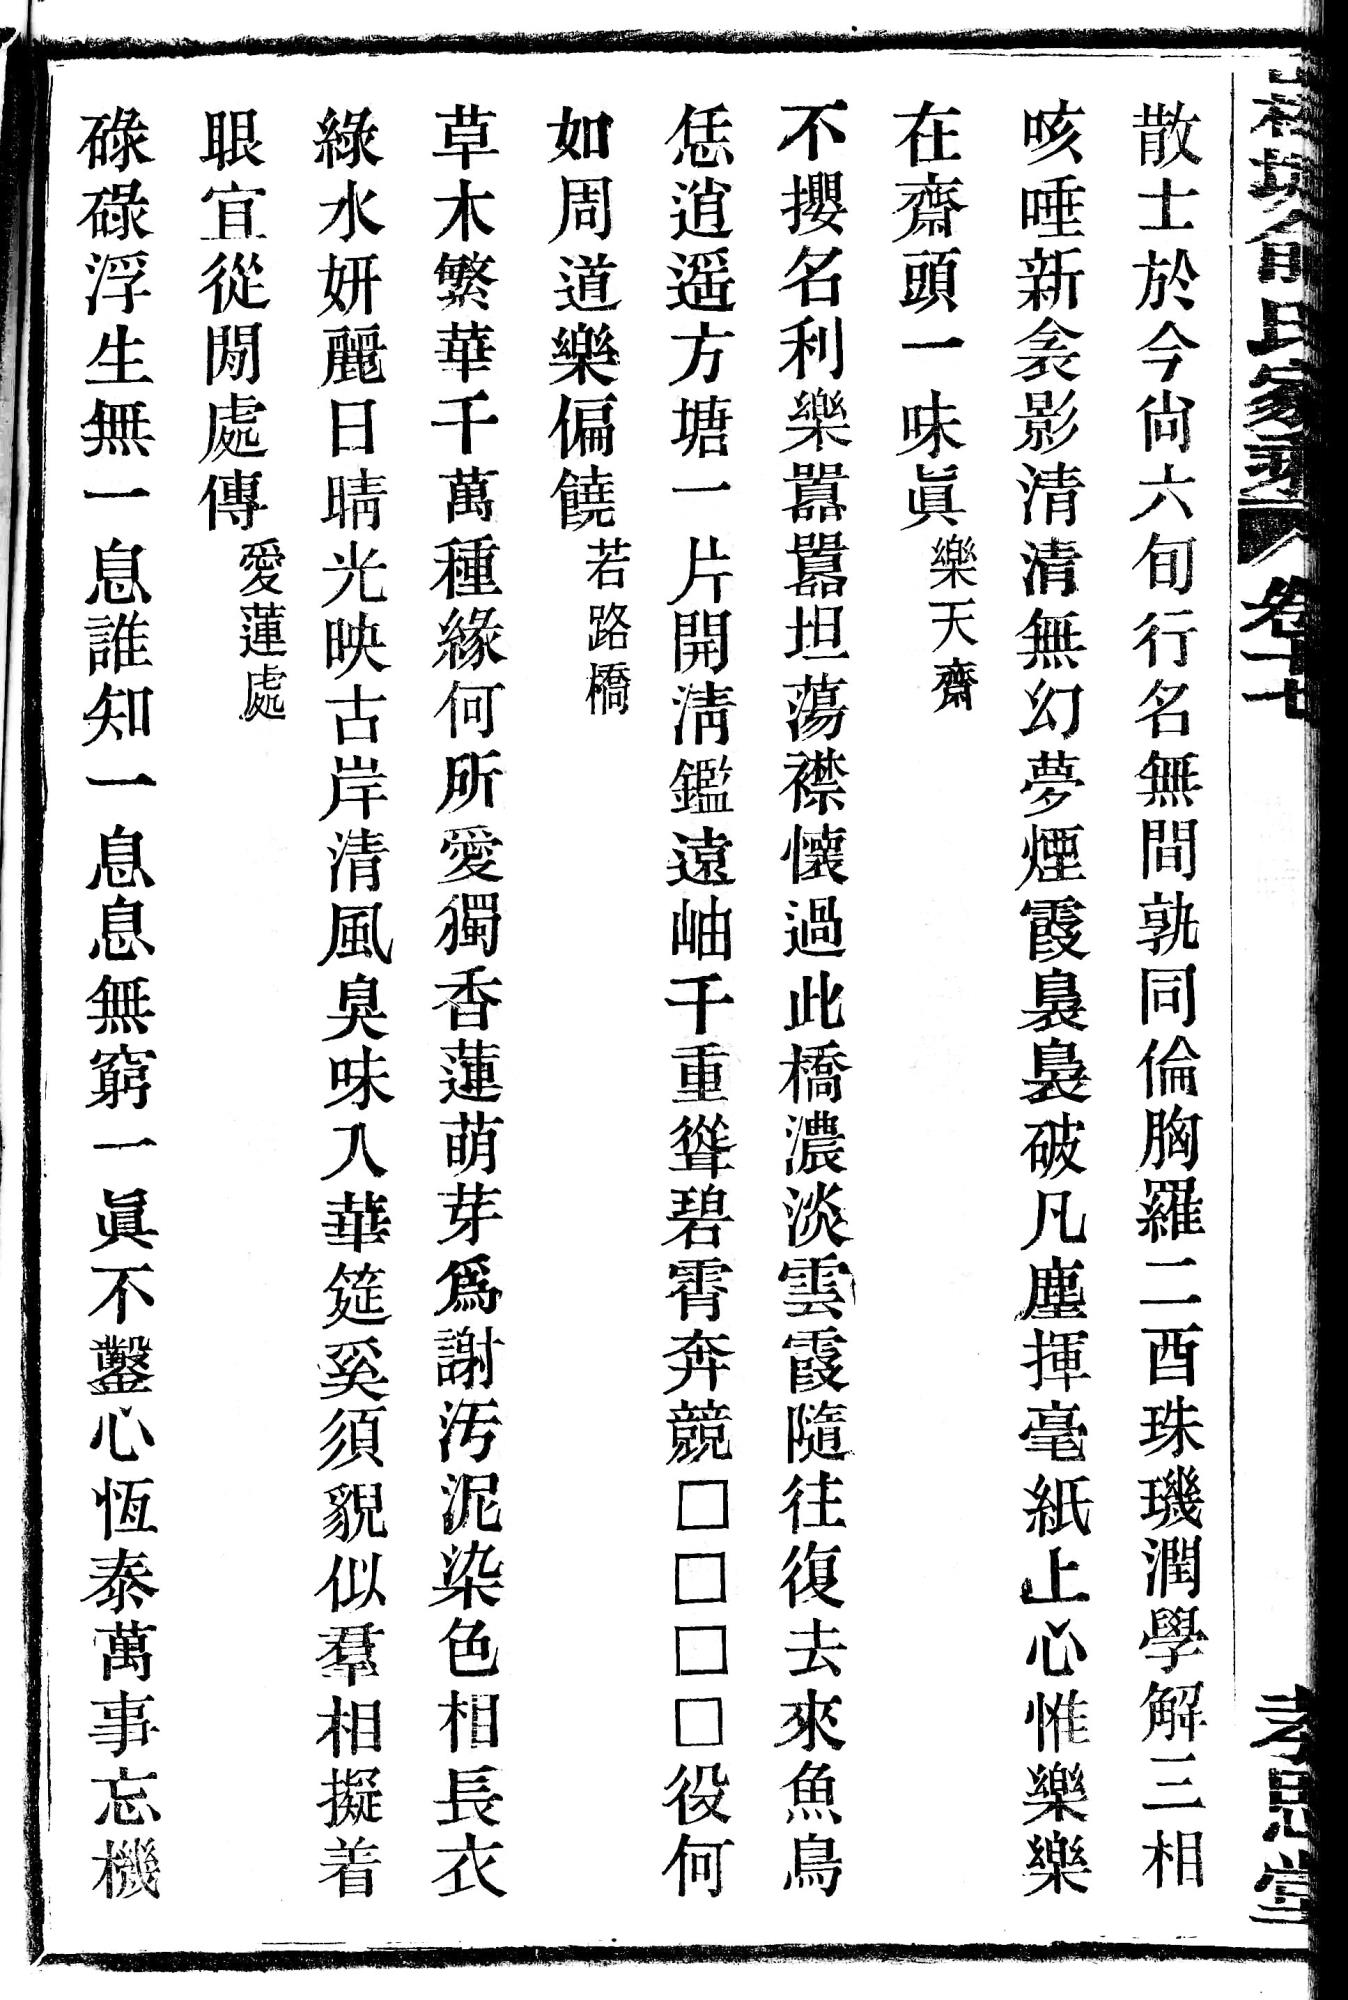 氏家乘 卷十七 孝思堂
散士於今尙六旬行名無間孰同倫胸羅二酉珠璣潤學解三相
咳唾新衾影清清無幻夢煙霞裊裊破凡塵揮毫紙上心惟樂樂
在齋頭一味眞樂天齋
不攖名利樂囂囂坦蕩襟懷過此橋濃淡雲霞隨往復去來魚鳥
恁逍遥方塘一片開淸鑑遠岫千重聳碧霄奔競□□□□役何
如周道樂偏饒若路橋
草木繁華千萬種緣何所愛獨香蓮萌芽爲謝汚泥染色相長衣
綠水妍麗日晴光映古岸清風臭味入華筵奚須貌似羣相擬着
眼宜從閒處傳愛蓮處
碌碌浮生無一息誰知一息息無窮一眞不鑿心恆泰萬事忘機